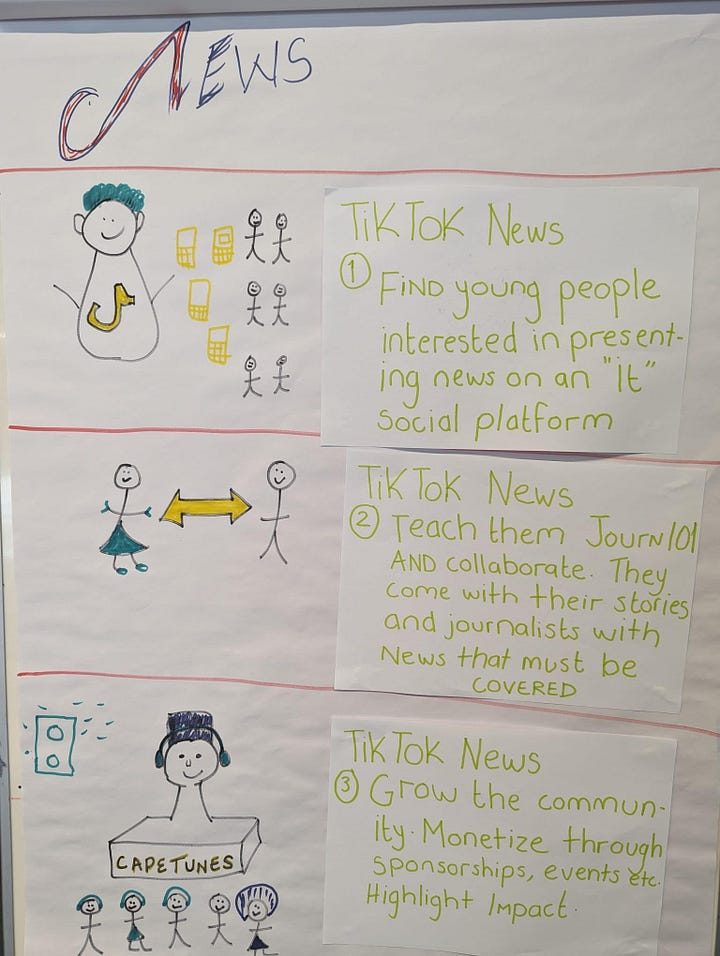 NEWS
TikTok News
① Find young people
interested in present-
ing news on an "it"
social platform
TikTok News
② Teach them Journ101
AND collaborate. They
come with their stories
and journalists with
News that must be
COVERED
TikTok News
③ Grow the commun-
ity. Monetize through
sponsorships, events etc.
Highlight Impact.
CAPETUNES